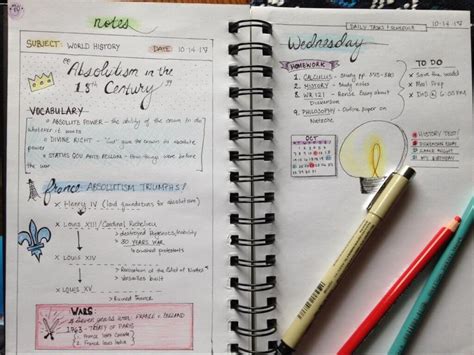 notes
SUBJECT: WORLD HISTORY DATE: 10-14-15
"Absolutism in the
18th Century"
VOCABULARY
ABSOLUTE POWER - the ability of the crown to do
whatever it wants
DIVINE RIGHT - "God" gave the crown its absolute
power
STATUS QUO ANTE BELLUM - how things were before
the war
france ABSOLUTISM TRIUMPHS!
Henry IV (laid foundations for absolutism)
Louis XIII / Cardinal Richelieu
destroyed Huguenots/nobility
30 YEARS WAR
crushed protestants
Louis XIV
Revocation of the Edict of Nantes
Versailles built
Louis XV
Ruined France
WARS:
Seven years war: FRANCE v. ENGLAND
1763 - TREATY OF PARIS
1. France loses Canada
2. France loses India
DAILY TASKS / SCHEDULE
10-14-15
Wednesday
HOMEWORK
1. CALCULUS - Study pp.
2. HISTORY - Study notes
3. WR 121 - Revise Essay about
Dickinson
4. PHILOSOPHY - Outline paper on
Nietzsche
TO DO
Save the world
Meal Prep
DnD @ 6:00 PM
OCT
HISTORY TEST!
DICKINSON ESSAY
GAME NIGHT
M'S BIRTHDAY